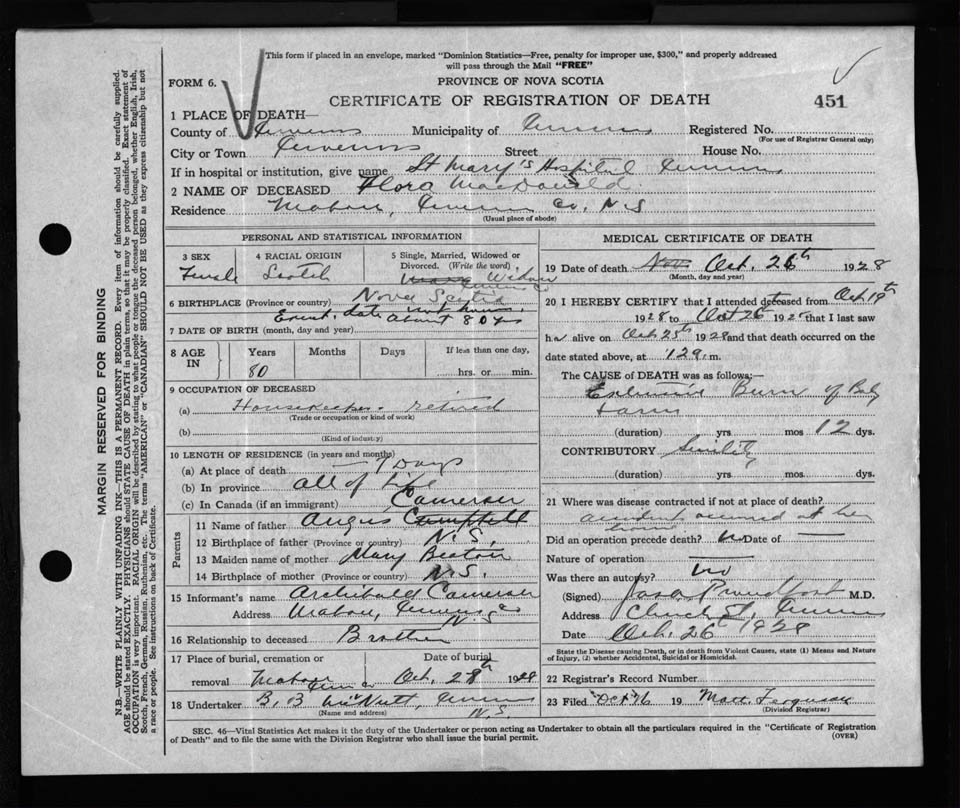 This form if placed in an envelope, marked "Dominion Statistics—Free, penalty for improper use, $300," and properly addressed
will pass through the Mail "FREE"
FORM 6.
PROVINCE OF NOVA SCOTIA
CERTIFICATE OF REGISTRATION OF DEATH
451
1 PLACE OF DEATH—
County of Inverness Municipality of Inverness Registered No.
(For use of Registrar General only)
City or Town Inverness Street House No.
If in hospital or institution, give name St Mary's Hospital Inverness
2 NAME OF DECEASED Flora MacDonald.
Residence Mabou, Inverness Co. N.S
(Usual place of abode)
PERSONAL AND STATISTICAL INFORMATION
3 SEX
Female
4 RACIAL ORIGIN
Scotch
5 Single, Married, Widowed or
Divorced. (Write the word)
Widow
6 BIRTHPLACE (Province or country) Nova Scotia
Inverness Co
Exact date not known,
about 80 yrs
7 DATE OF BIRTH (month, day and year)
8 AGE
IN
Years
80
Months
Days
If less than one day,
hrs. or min.
9 OCCUPATION OF DECEASED
(a) Housekeeper. retired
(Trade or occupation or kind of work)
(b)
(Kind of industry)
10 LENGTH OF RESIDENCE (in years and months)
(a) At place of death — 7 Days
(b) In province all of Life
(c) In Canada (if an immigrant)
Parents
11 Name of father Angus Campbell Cameron
12 Birthplace of father (Province or country) N.S.
13 Maiden name of mother Mary Beaton
14 Birthplace of mother (Province or country) N.S.
15 Informant's name Archibald Cameron
Address Mabou, Inverness Co
N.S
16 Relationship to deceased Brother
17 Place of burial, cremation or
removal Mabou
Inver Co
Date of burial
Oct. 28th 1928
18 Undertaker B. B
Inverness
(Name and address)
N.S.
MEDICAL CERTIFICATE OF DEATH
19 Date of death Nov. Oct. 26th 1928
(Month, day and year)
20 I HEREBY CERTIFY that I attended deceased from Oct 19th
1928 to Oct 26th 1928 that I last saw
her alive on Oct 25th 1928 and that death occurred on the
date stated above, at 12 a. m.
The CAUSE of DEATH was as follows:
Extensive Burn of Body
+ arms
(duration) yrs mos 12 dys.
CONTRIBUTORY Senility
(duration) yrs mos dys.
21 Where was disease contracted if not at place of death?
accident occurred at her
home.
Did an operation precede death? no Date of —
Nature of operation —
Was there an autopsy? no
(Signed) Proudfoot M.D.
Address Church St, Inverness
Date Oct. 26th 1928
State the Disease causing Death, or in death from Violent Causes, state (1) Means and Nature
of Injury, (2) whether Accidental, Suicidal or Homicidal.
22 Registrar's Record Number
23 Filed Oct 19 Matt. Ferguson
(Division Registrar)
SEC. 46—Vital Statistics Act makes it the duty of the Undertaker or person acting as Undertaker to obtain all the particulars required in the "Certificate of Registration
of Death" and to file the same with the Division Registrar who shall issue the burial permit.
(OVER)
MARGIN RESERVED FOR BINDING
N.B.—WRITE PLAINLY WITH UNFADING INK—THIS IS A PERMANENT RECORD. Every item of information should be carefully supplied.
AGE should be stated EXACTLY. PHYSICIANS should STATE CAUSE OF DEATH in plain terms, so that it may be properly classified. Exact statement of
OCCUPATION is very important. RACIAL ORIGIN will be described by stating to what people or tongue the deceased person belonged, whether English, Irish,
Scotch, French, German, Russian, Ruthenian, etc. The terms "AMERICAN" or "CANADIAN" SHOULD NOT BE USED as they express citizenship but not
a race or people. See instructions on back of Certificate.